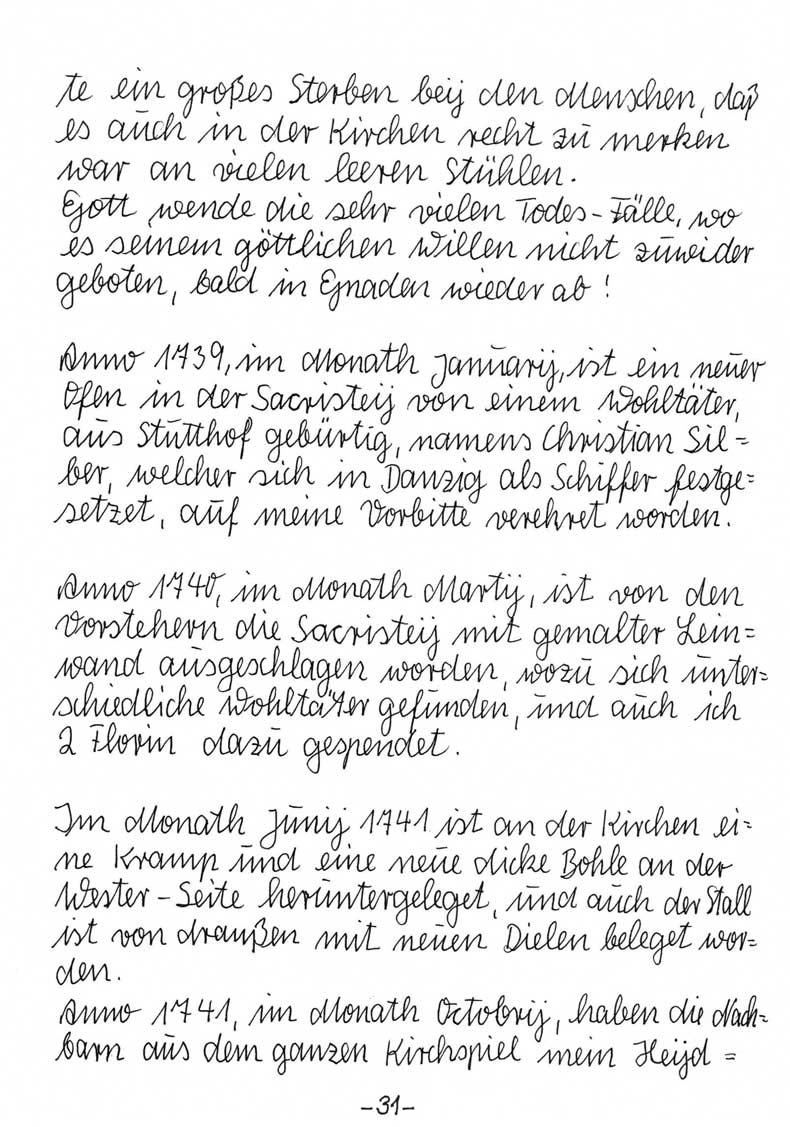 te ein großes Sterben beij den Menschen, daß
es auch in der Kirchen recht zu merken
war an vielen leeren Stühlen.
Gott wende die sehr vielen Todes-Fälle, wo
es seinem göttlichen Willen nicht zuwider
geboten, bald in Gnaden wieder ab!
Anno 1739, im Monath Januarij, ist ein neuer
Ofen in der Sacristeij von einem Wohltäter,
aus Stutthof gebürtig, namens Christian Sil=
ber, welcher sich in Danzig als Schiffer festge=
setzet, auf meine Vorbitte verehret worden.
Anno 1740, im Monath Martij, ist von den
Vorstehern die Sacristeij mit gemalter Lein=
wand ausgeschlagen worden, wozu sich unter=
schiedliche Wohltäter gefunden, und auch ich
2 Florin dazu gespendet.
Im Monath Junij 1741 ist an der Kirchen ei=
ne Kramp und eine neue dicke Bohle an der
Wester-Seite heruntergeleget, und auch der Stall
ist von draußen mit neuen Dielen beleget wor=
den.
Anno 1741, im Monath Octobrij, haben die Nach=
barn aus dem ganzen Kirchspiel mein Heijd=
-31-